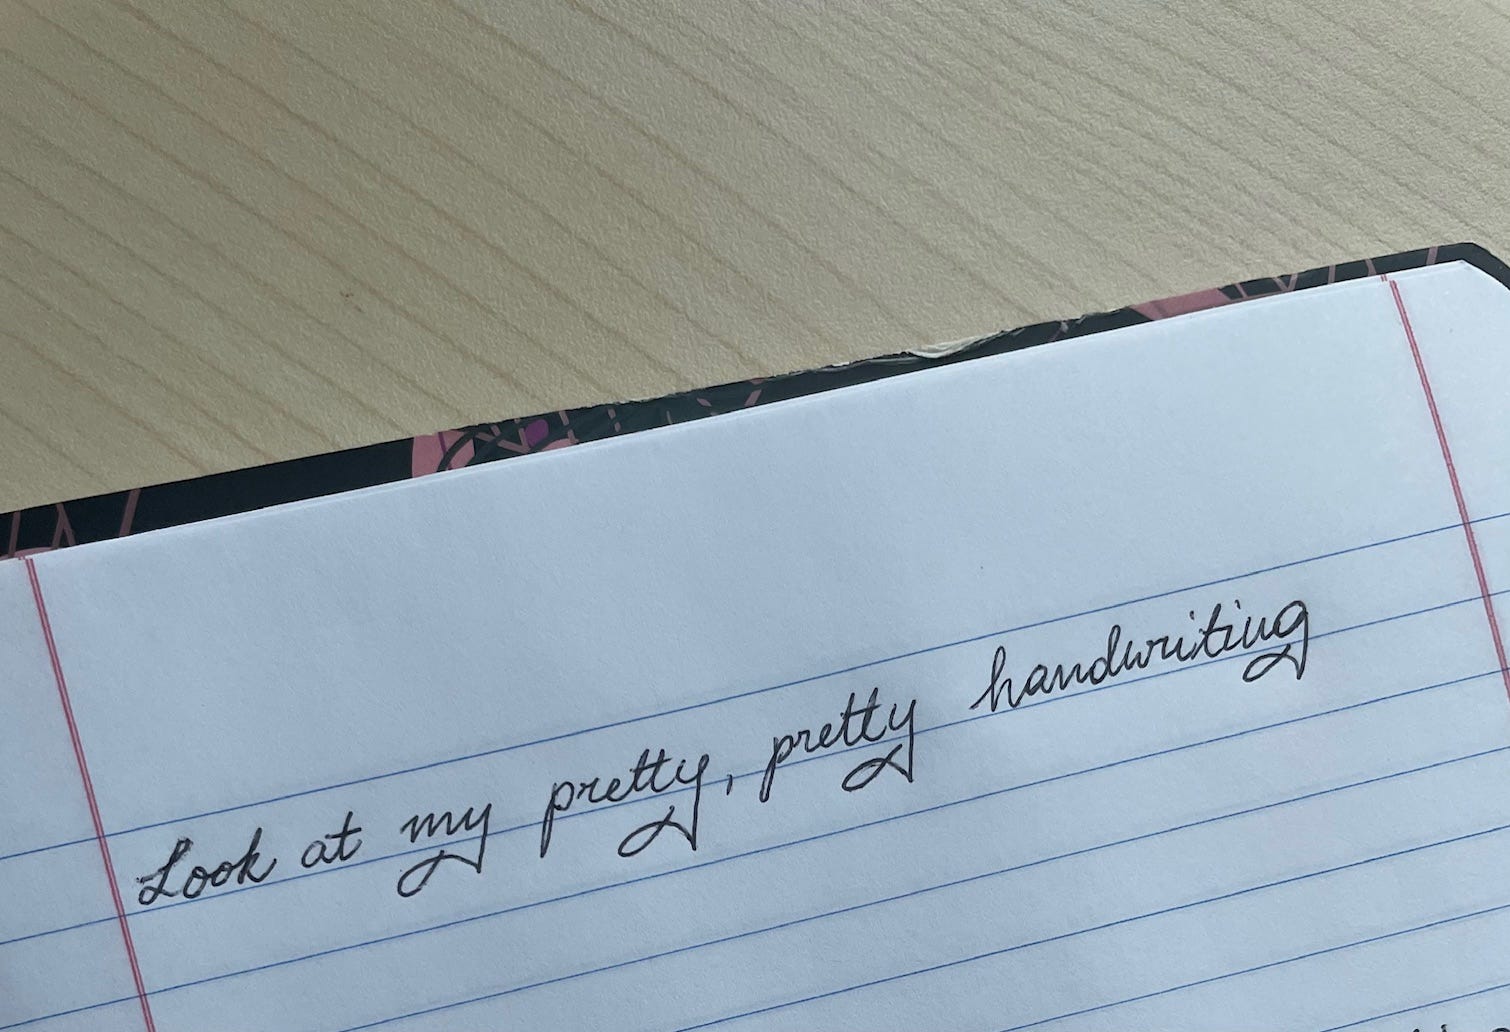 Look at my pretty, pretty handwriting